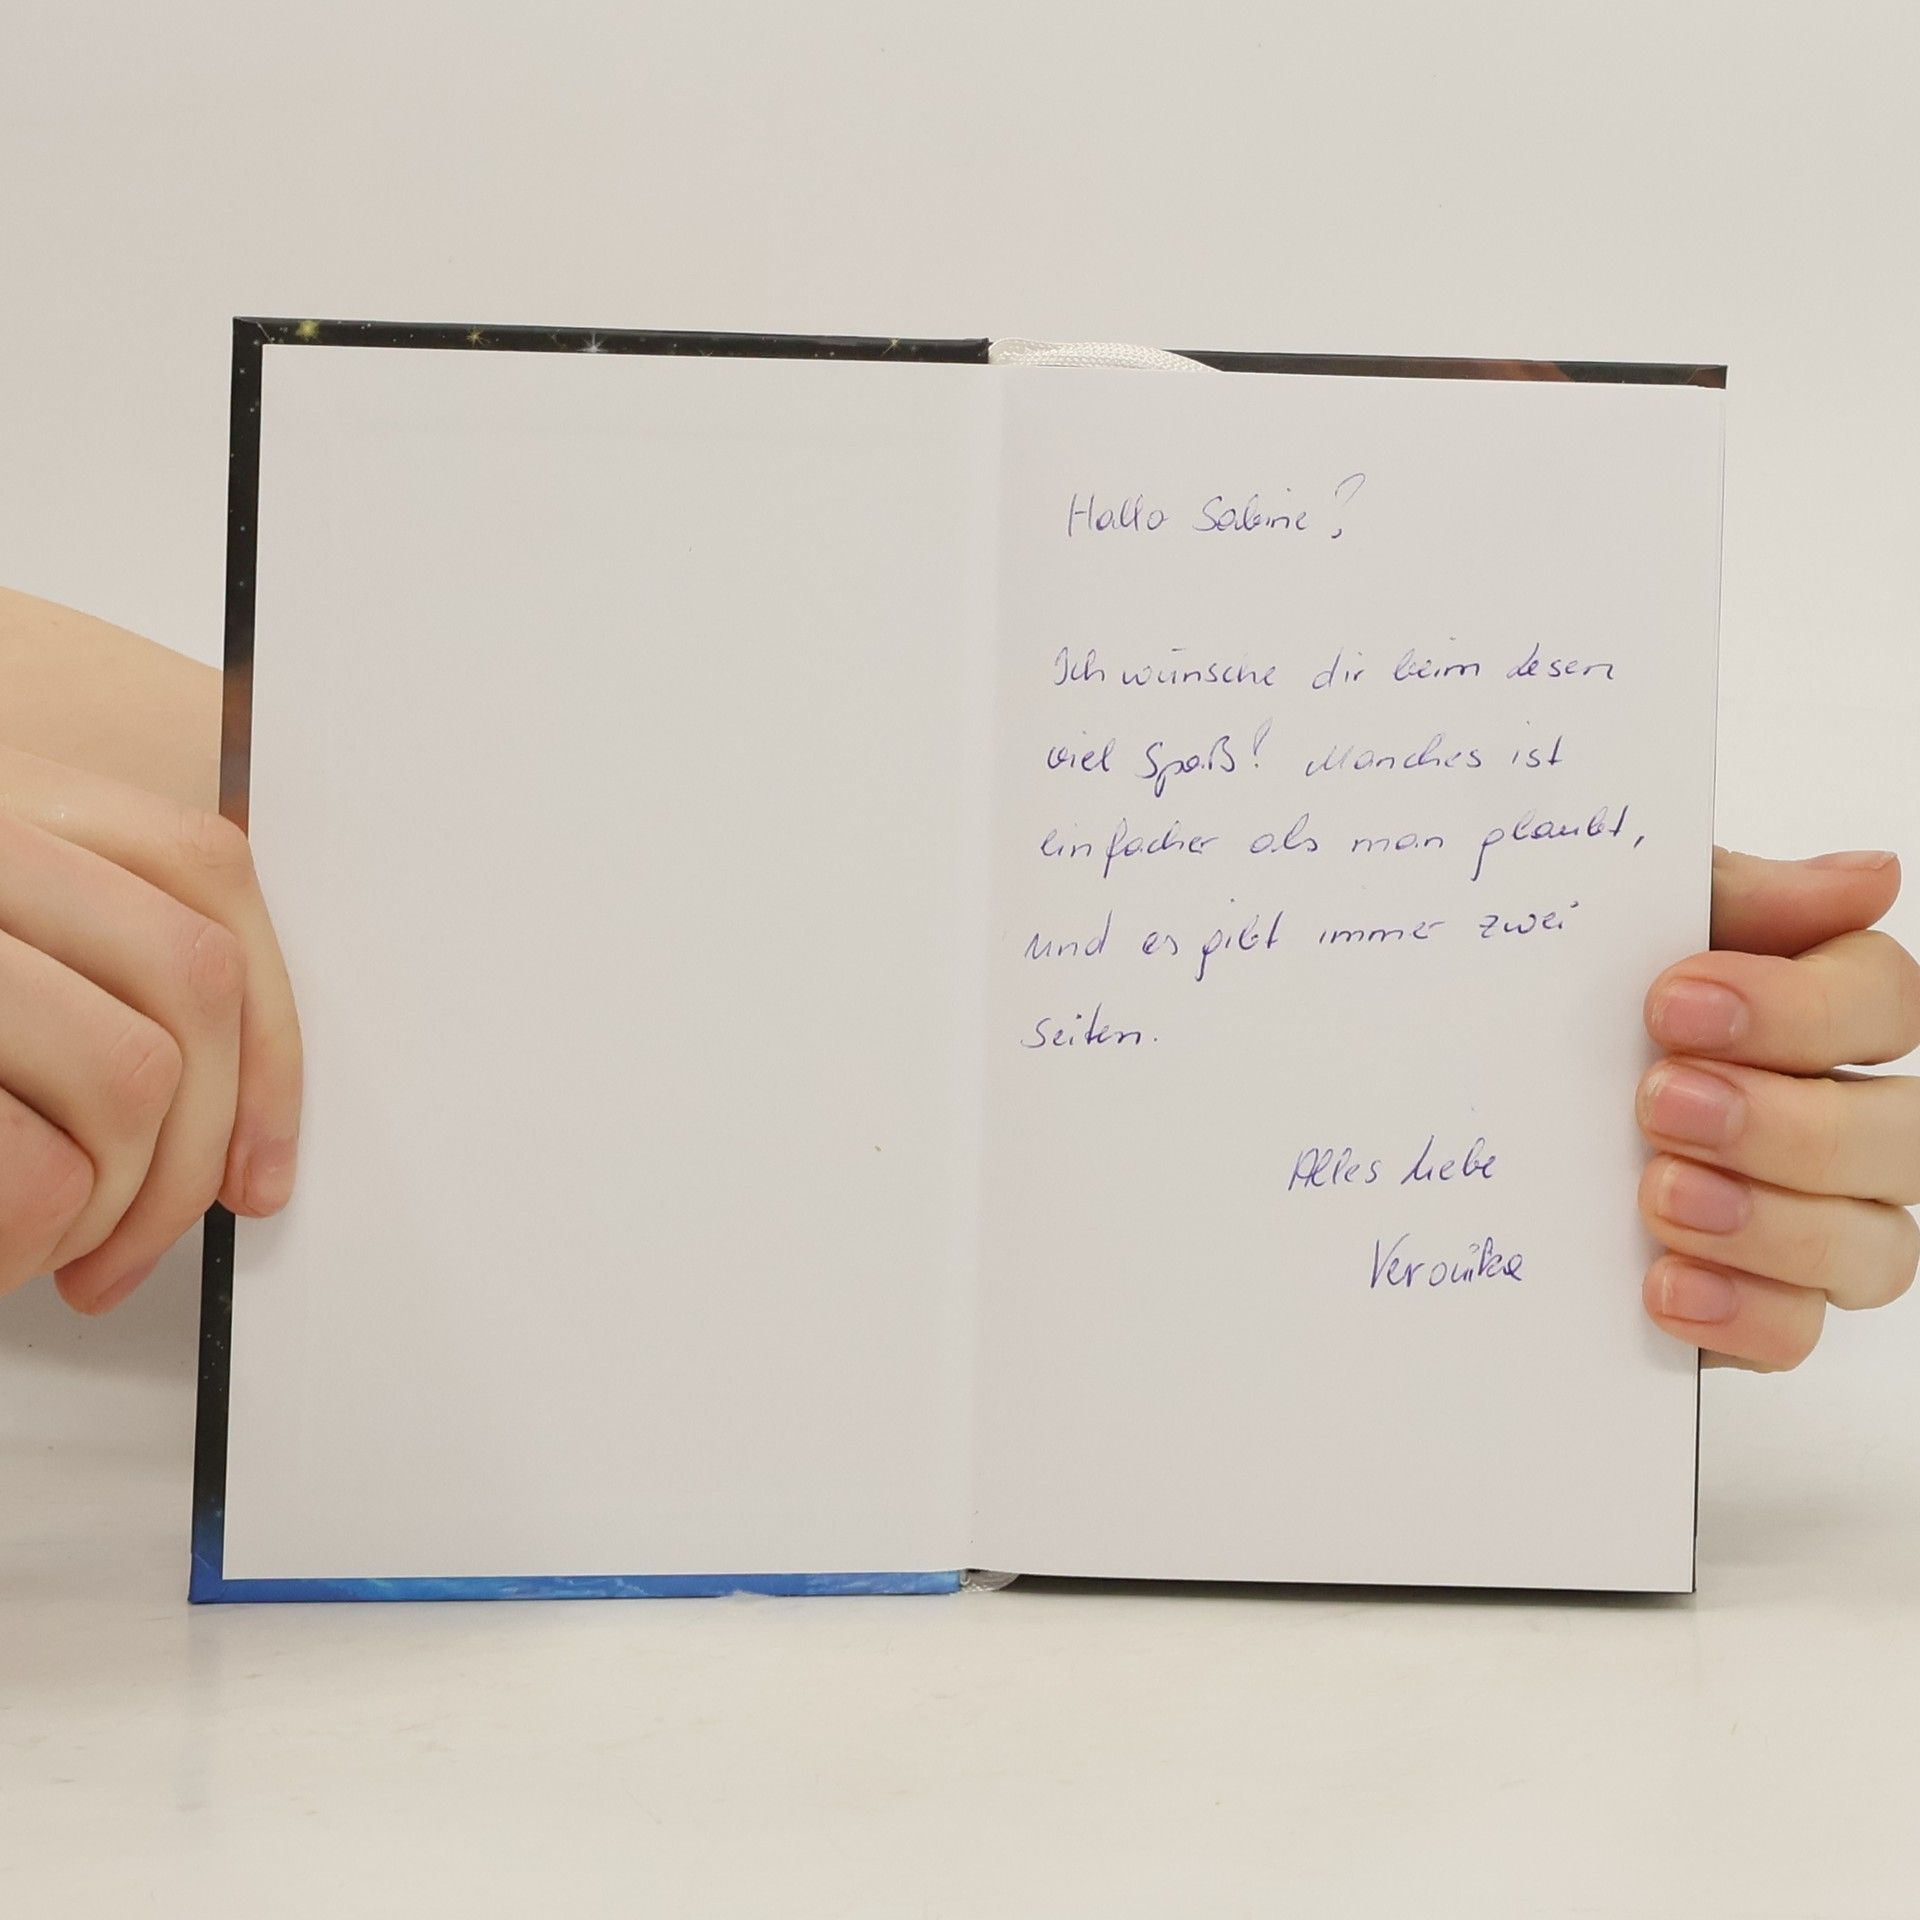 Hallo Sabine!
Ich wünsche dir beim Lesen
viel Spaß! Manches ist
einfacher als man glaubt,
und es gibt immer zwei
Seiten.
Alles Liebe
Veronika